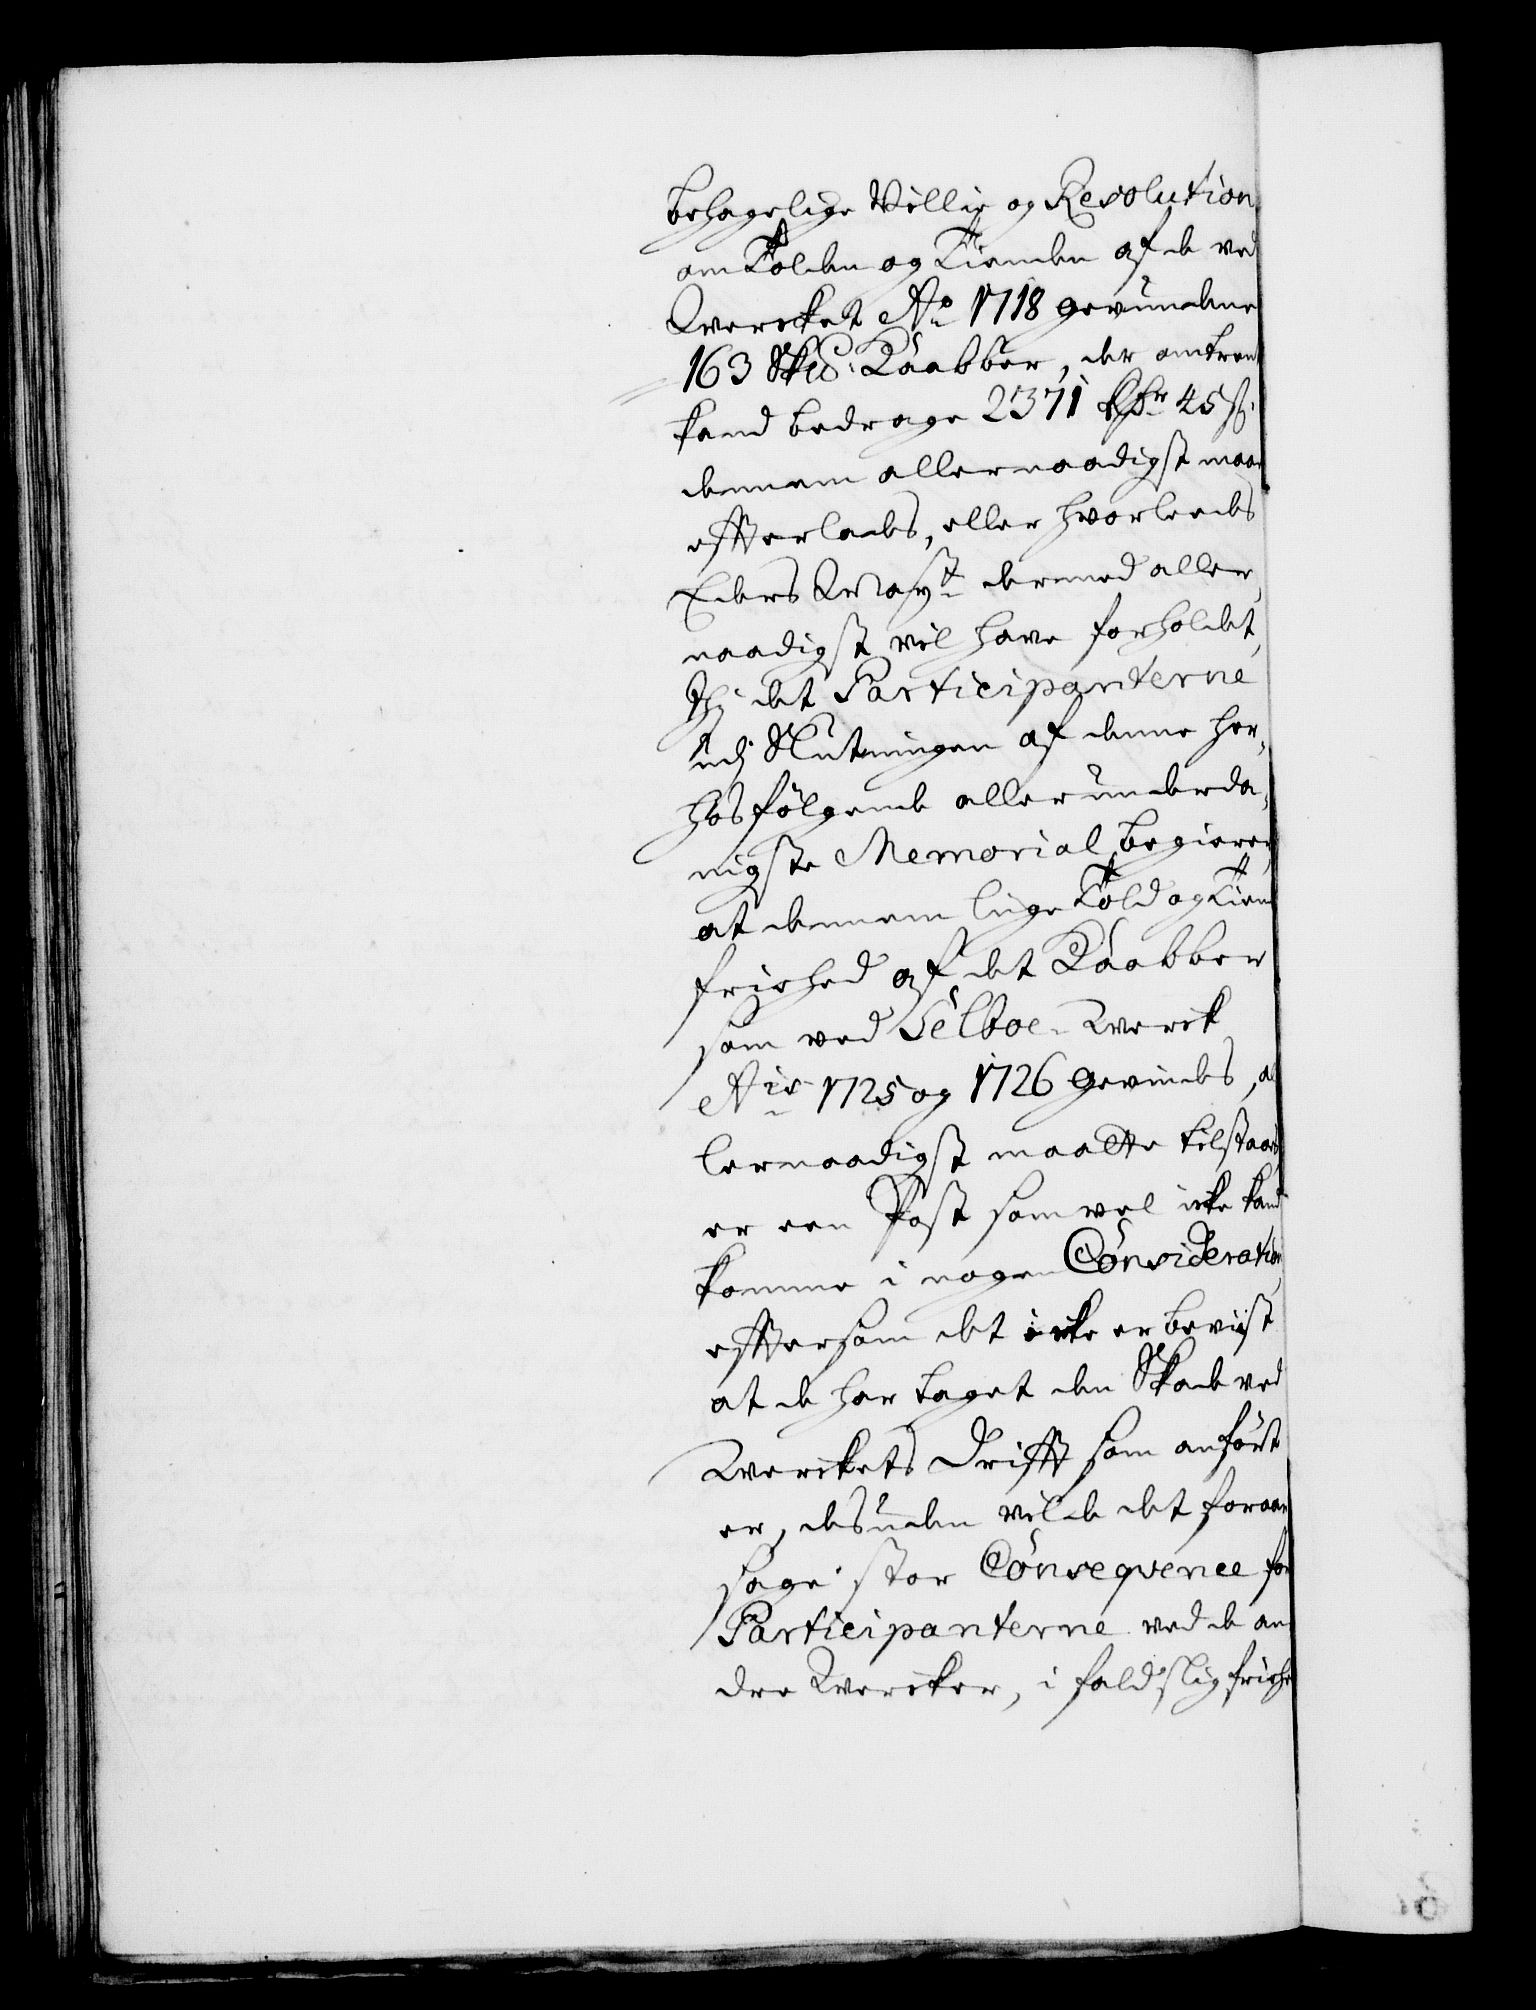 behagelige Villie og Resolution
om Tolden og Tienden af de ved
Wercket Aō 1718 gevundene
163 Sk℔: Kaabber, der omtren
kand bedrage 2371 Rdr 45 s.
dennem allernaadigst maae
efterlades, eller hvorleedes
Eders Kl Mayst dermed aller,
naadigst vil have forholdet,
Thj det Participanterne
udj Slutningen af denne her,
hos følgende allerunderda,
nigste Memorial begierer,
at dennem liige Told og Tien
friehed af det Kaabber
som ved Selboe-Werck
Ais 1725 og 1726 gevindes, al
lernaadigst maatte tilstaaes,
er een Post som vel icke kand
komme i nogen Consideration,
eftersom det icke er beviist
at de har taget den Skade ved
Werckets Drifft som anført
er, desuden vilde det foraar
sage stor Conseqvence for
Participanterne ved de an
dre Wercker, i fald slig friehe